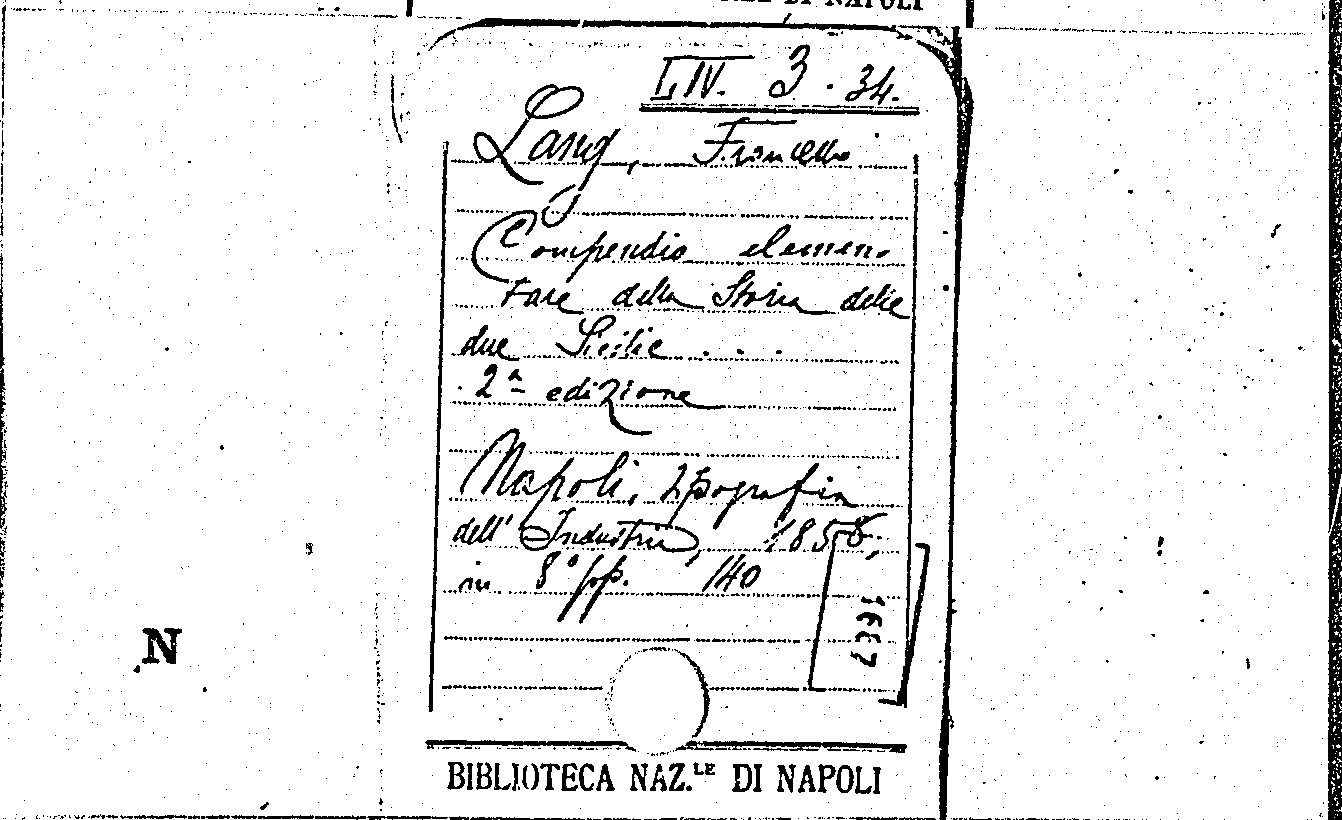 DI NAPOLI
LIV. 3. 34.
Lang, Francesco
Compendio elemen-
tare della Storia delle
due Sicilie . . .
2ª edizione
Napoli, Tipografia
dell' Industria, 1858,
in 8° pp. 140
1687
N
BIBLIOTECA NAZ.LE DI NAPOLI